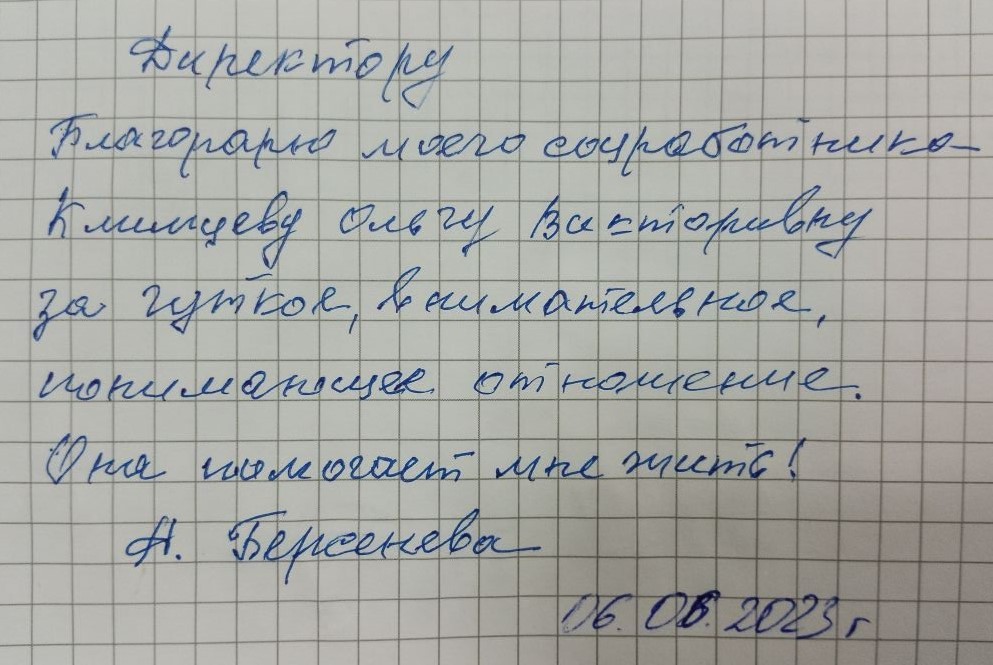 Директору
Благодарю моего соцработника
Климцеву Ольгу Викторовну
за чуткое, внимательное,
понимающее отношение.
Она помогает мне жить!
А. Берсенева
06. 06. 2023 г